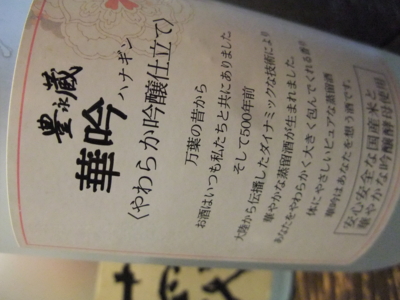 豊永蔵
華吟
ハナギン
〈やわらか吟醸仕立て〉
万葉の昔から
お酒はいつも私たちと共にありました
そして500年前
大陸から伝播したダイナミックな技術により
華やかな蒸留酒が生まれました。
あなたをやわらかく大きく包んでくれる香り
体にやさしいピュアな蒸留酒
華吟はあなたを想う酒です。
安心安全な国産米と
華やかな吟醸酵母使用